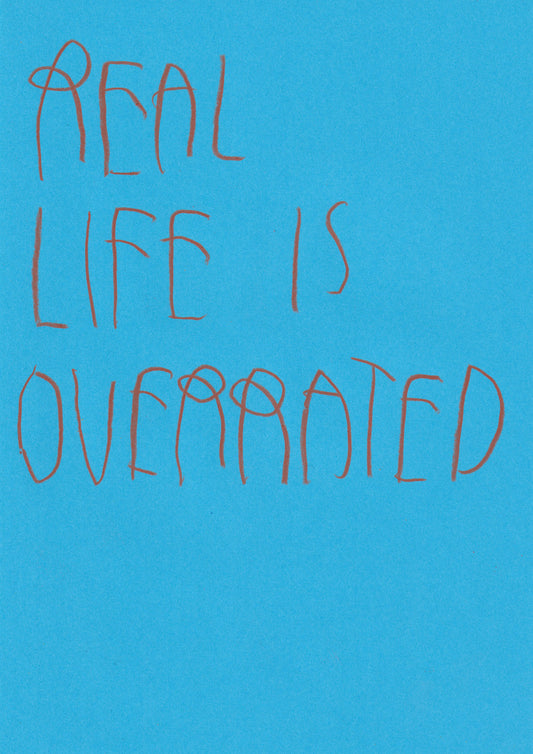 REAL
LIFE IS
OVERRATED